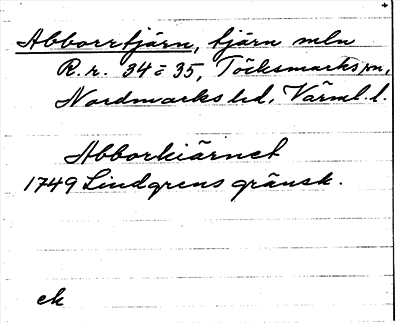 Abborrtjärn, tjärn mln
R.r. 34 = 35, Töcksmarks sn,
Nordmarks hd, Värml. l.
Abborkiärnet
1749 Lindgrens gränsk.
ek